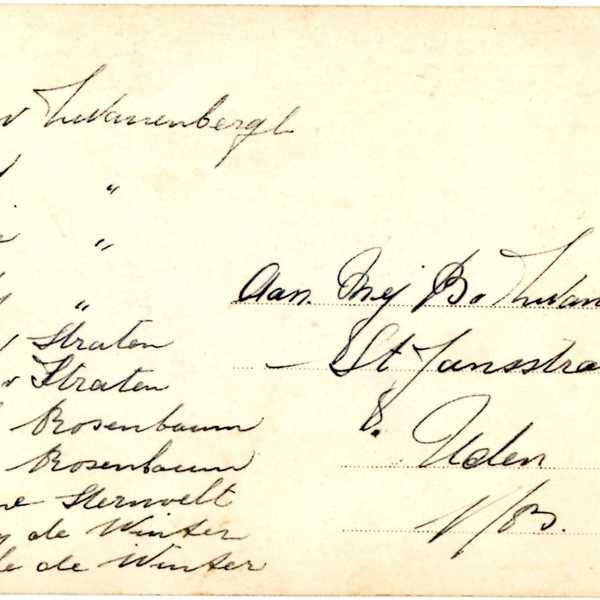 v Zwanenbergh
"
"
"
v Straten
v Straten
Rosenbaum
Rosenbaum
ne Sternvelt
de Winter
le de Winter
Aan. Mej B. v Zwan
St Jansstra
8.
Uden
N/B.